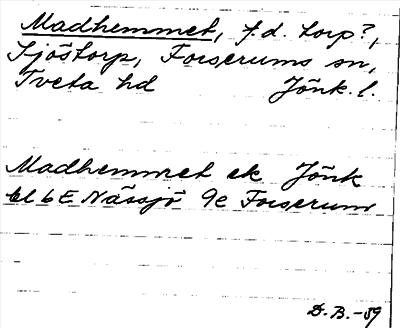 Madhemmet, f.d. torp?,
Sjöstorp, Forserums sn,
Tveta hd Jönk. l.
Madhemmet ek Jönk
bl 6E Nässjö 9e Forserum
D.B.-89